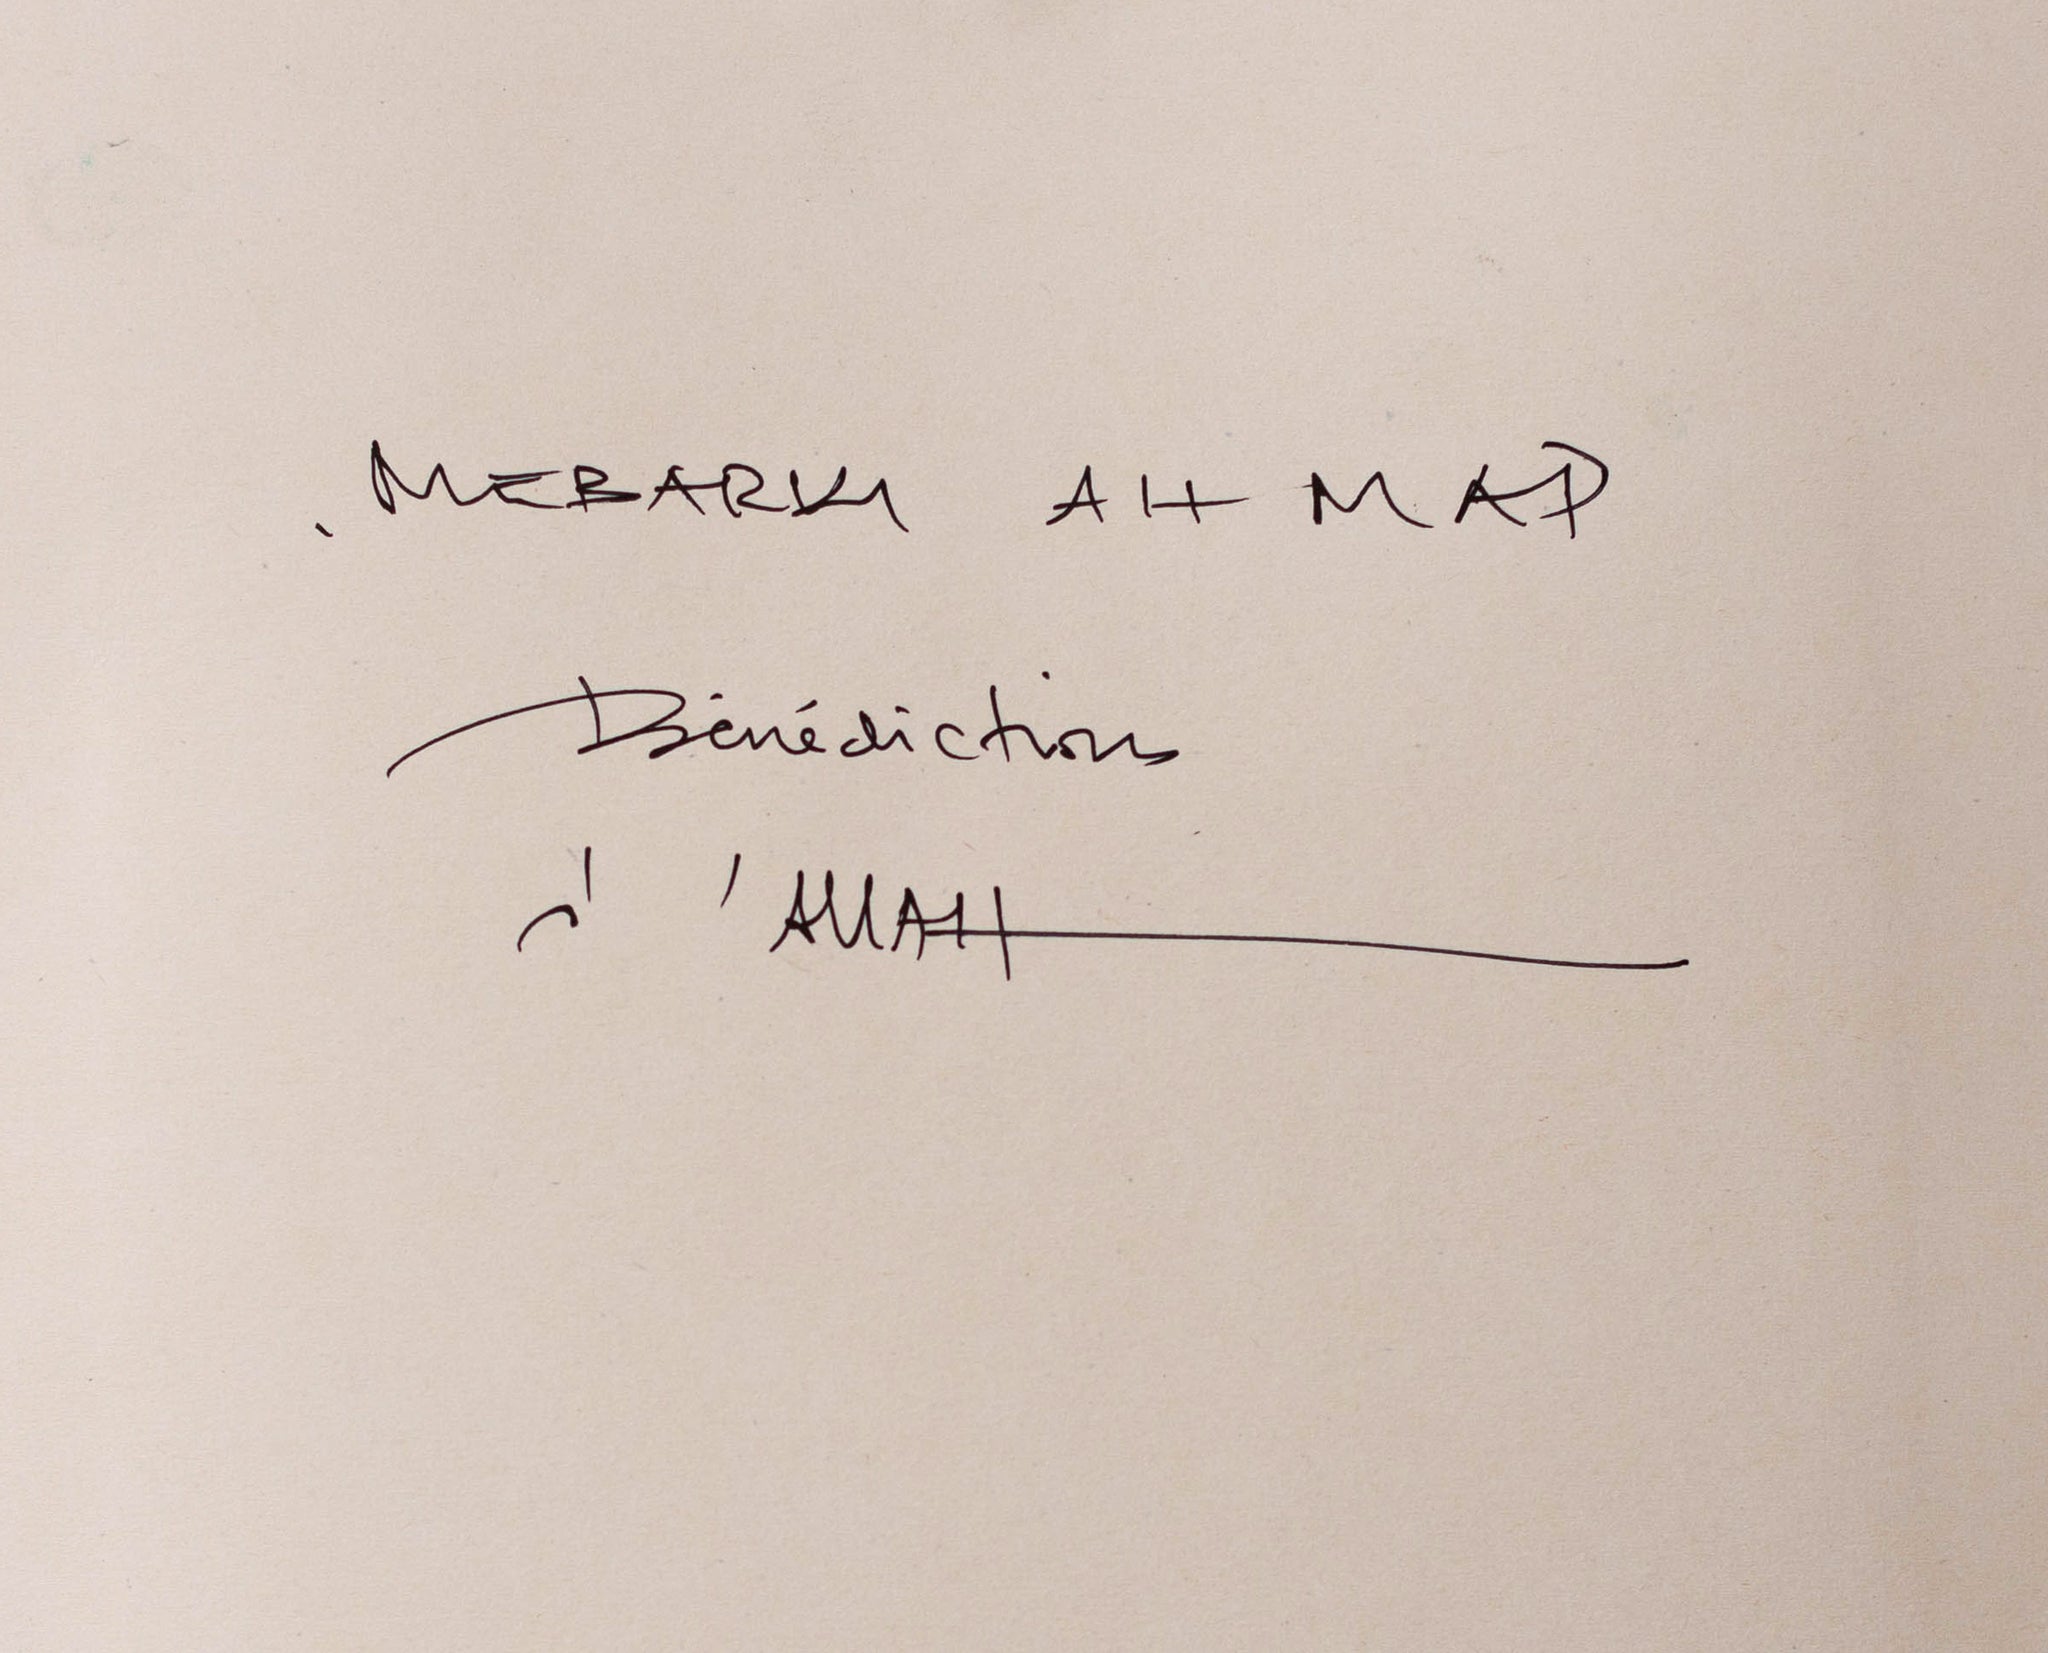 MEBARKI AHMAD
Bénédictions
d' ' ALLAH